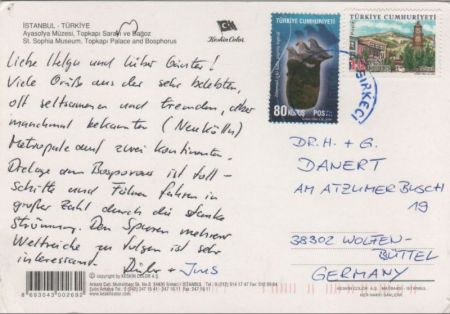 ISTANBUL - TÜRKİYE
Ayasofya Müzesi, Topkapı Sarayı ve Boğaz
St. Sophia Museum, Topkapı Palace and Bosphorus
Keskin Color
TÜRKİYE CUMHURİYETİ
80 KURUŞ POSTA
TÜRKİYE CUMHURİYETİ
SİRKECİ
Liebe Helga und lieber Günter!
Viele Grüße aus der sehr belebten,
oft seltsamen und fremden, aber
manchmal bekannten (Neukölln)
Metropole auf zwei Kontinenten.
Die Lage am Bosporus ist toll -
Schiffe und Fähren fahren in
großer Zahl durch die starke
Strömung. Den Spuren mehrerer
Weltreiche zu folgen ist sehr
interessant.
DR. H. + G.
DANERT
AM ATZUMER BUSCH
19
38302 WOLFEN-
BÜTTEL
GERMANY
copyright by KESKIN COLOR A.S.
8 693043 002692
KESKIN COLOR A.Ş. MATBAASI - ISTANBUL